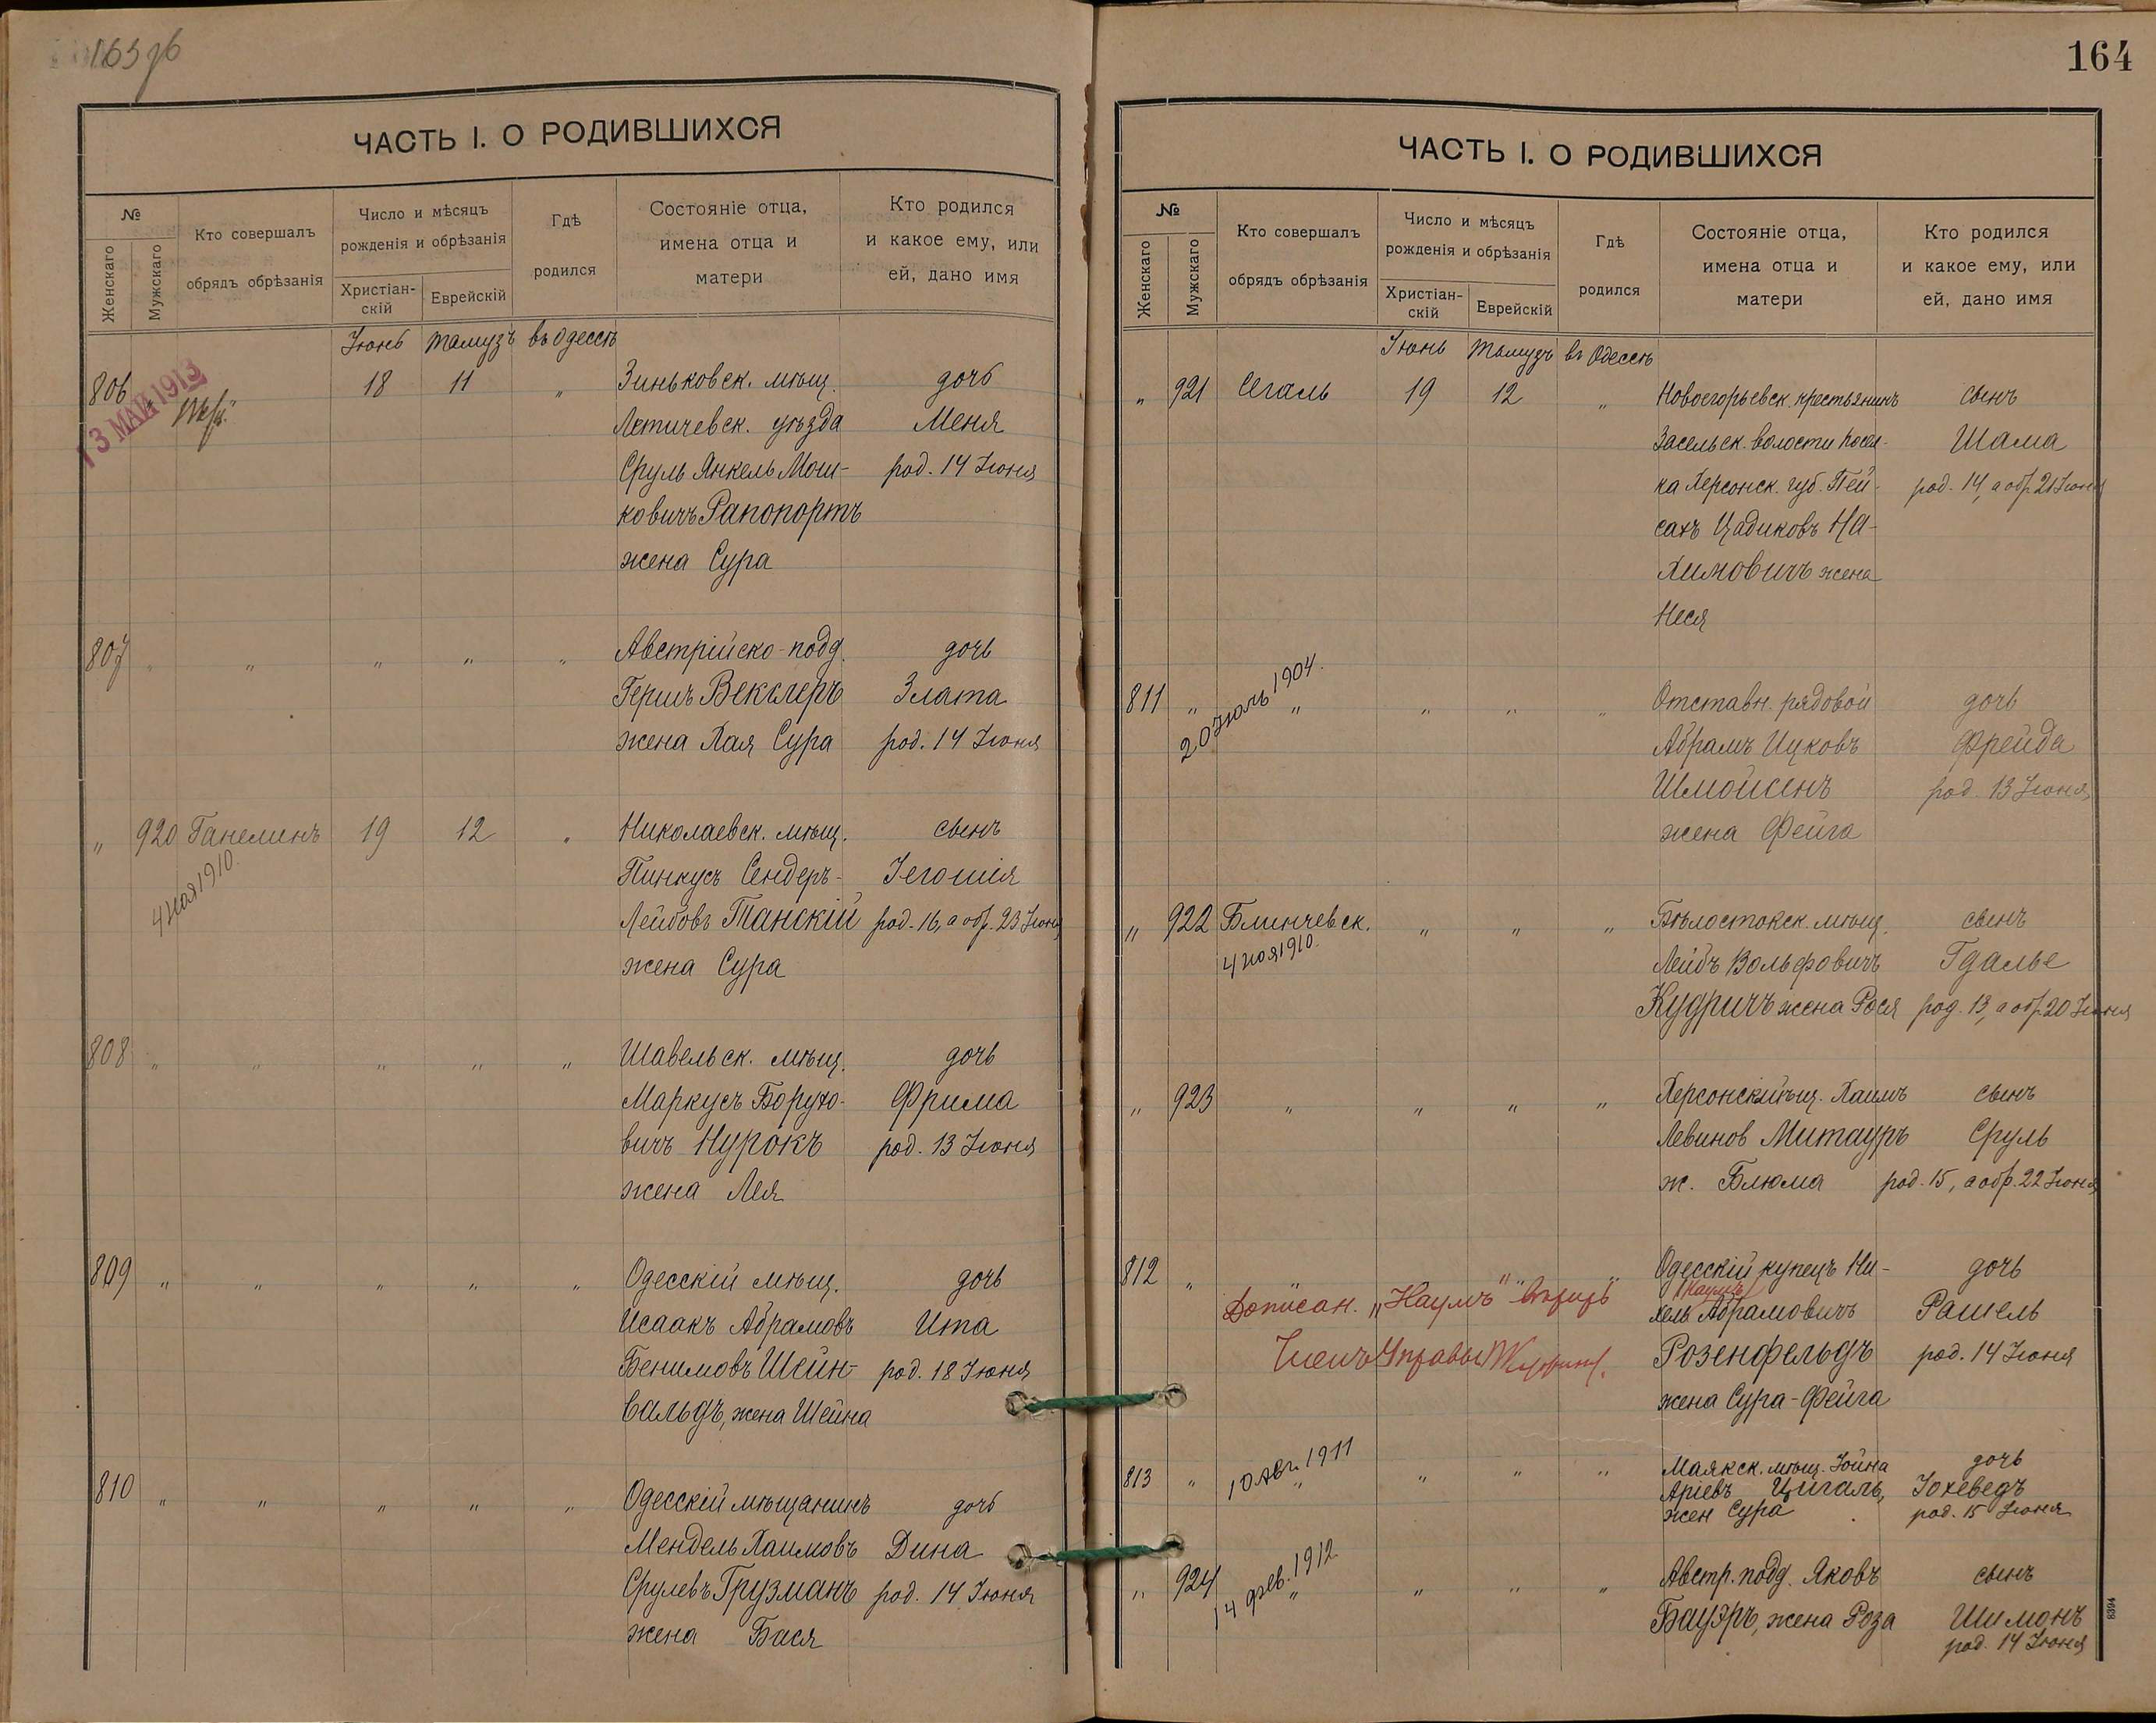 ЧАСТЬ I. О РОДИВШИХСЯ
№
Женскаго
Мужскаго
Кто совершалъ
обрядъ обрѣзанія
Число и мѣсяцъ
рожденія и обрѣзанія
Христіан-
скій
Еврейскій
Гдѣ
родился
Состояніе отца,
имена отца и
матери
Кто родился
и какое ему, или
ей, дано имя
Іюнь Тамузъ въ Одессѣ
806 " 18 11 " Зиньковск. мѣщ. дочь
13 МАЙ 1913
Летичевск. уѣзда Меня
Сруль Янкель Мош- род. 14 Іюня
ковичъ Рапопортъ
жена Сура
807 " " " " " Австрійско-подд. дочь
Гершъ Векслеръ Злата
жена Хая Сура род. 14 Іюня
" 920 Ганелинъ 19 12 " Николаевск. мѣщ. сынъ
4 ноя 1910.
Пинкусъ Сендеръ- Іегошія
Лейбовъ Танскій род. 16, а обр. 23 Іюня
жена Сура
808 " " " " " Шавельск. мѣщ. дочь
Маркусъ Борухо- Фрима
вичъ Нурокъ род. 13 Іюня
жена Лея
809 " " " " " Одесскій мѣщ. дочь
Исаакъ Абрамовъ Ита
Бенимовъ Шейн- род. 18 Іюня
вальдъ, жена Шейна
810 " " " " " Одесскій мѣщанинъ дочь
Мендель Хаимовъ Дина
Срулевъ Грузманъ род. 14 Іюня
жена Бася
164
ЧАСТЬ I. О РОДИВШИХСЯ
№
Женскаго
Мужскаго
Кто совершалъ
обрядъ обрѣзанія
Число и мѣсяцъ
рожденія и обрѣзанія
Христіан-
скій
Еврейскій
Гдѣ
родился
Состояніе отца,
имена отца и
матери
Кто родился
и какое ему, или
ей, дано имя
Іюнь Тамузъ въ Одессѣ
" 921 Сегаль 19 12 " Новоегорьевск. крестьянинъ сынъ
Засельск. волости Шама
ка Херсонск. губ. Пей- род. 14, а обр. 21 Іюня
сахъ Цадиковъ На-
химовичъ жена
Неся
811 " " " " " Отставн. рядовой дочь
20 Іюль 1904.
Абрамъ Ицковъ Фрейда
Шмойсенъ род. 13 Іюня
жена Фейга
" 922 Блинчевск. " " " Бѣлостокск. мѣщ. сынъ
4 ноя 1910.
Лейбъ Вольфовичъ Гдалье
Кудричъ жена Рося род. 13, а обр. 20 Іюня
" 923 " " " " Херсонскій мѣщ. Хаимъ сынъ
Левинов Митауръ Сруль
ж. Блюма род. 15, а обр. 22 Іюня
812 " " " " " Одесскій купецъ Ни- дочь
(Наумъ)
хель Абрамовичъ Рашель
Дописан. „Наумъ"
Членъ Управы
Розенфельдъ род. 14 Іюня
жена Сура-Фейга
813 " " " " " Маякск. мѣщ. Іойна дочь
10 Авг. 1911
Аріевъ Цигаль, Іохеведъ
жен Сура род. 15 Іюня
" 924 " " " " Австр. подд. Яковъ сынъ
14 фев. 1912
Бауэръ, жена Роза Шимонъ
род. 14 Іюня
8394